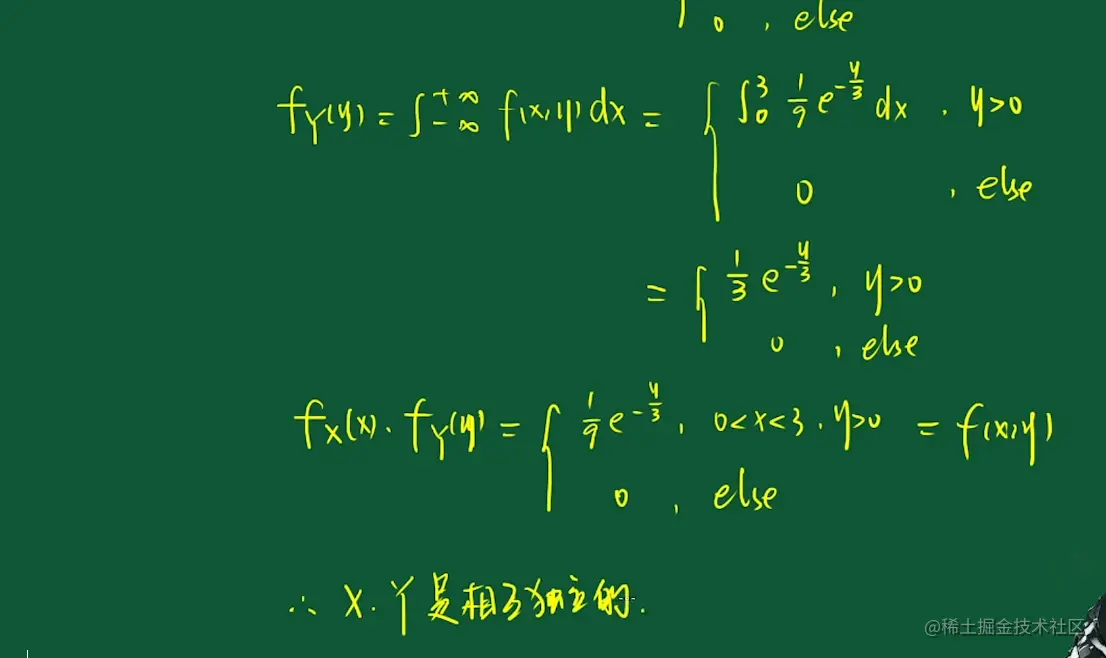 0 , else
f_Y(y) = ∫_{-∞}^{+∞} f(x,y) dx = { ∫_0^3 1/9 e^{-y/3} dx , y>0
0 , else
= { 1/3 e^{-y/3} , y>0
0 , else
f_X(x) · f_Y(y) = { 1/9 e^{-y/3} , 0<x<3 , y>0 = f(x,y)
0 , else
∴ X. Y 是相互独立的.
@稀土掘金技术社区